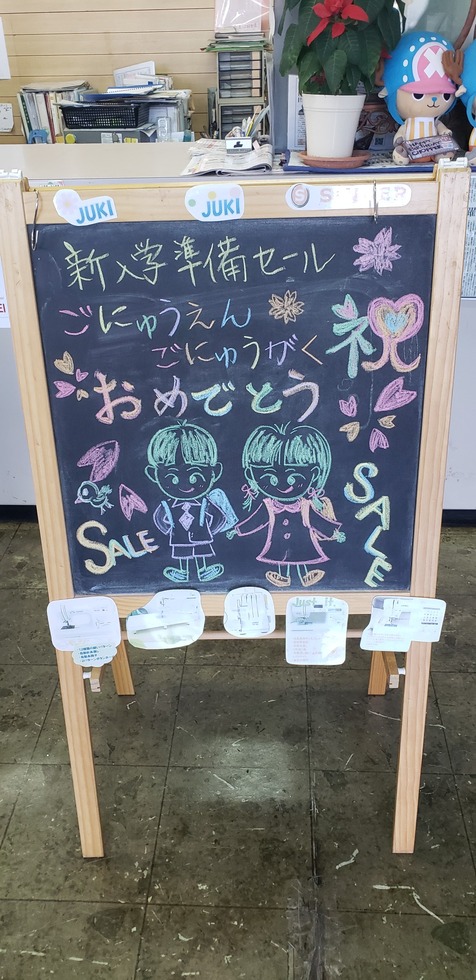 JUKI
JUKI
SINGER
新入学準備セール
ごにゅうえん
ごにゅうがく
祝
おめでとう
SALE
SALE
Just it.